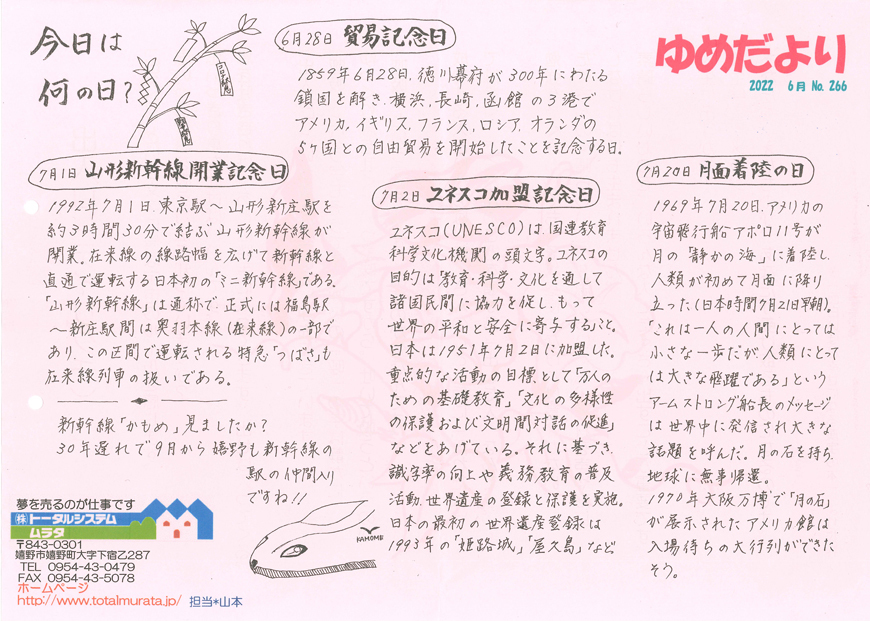 今日は
何の日？
6月28日 貿易記念日
1859年6月28日、徳川幕府が300年にわたる
鎖国を解き、横浜、長崎、函館の3港で
アメリカ、イギリス、フランス、ロシア、オランダの
5ヶ国との自由貿易を開始したことを記念する日。
ゆめだより
2022 6月 No. 266
7月1日 山形新幹線開業記念日
1992年7月1日、東京駅～山形新庄駅を
約3時間30分で結ぶ山形新幹線が
開業。在来線の線路幅を広げて新幹線と
直通で運転する日本初の「ミニ新幹線」である。
「山形新幹線」は通称で、正式には福島駅
～新庄駅間は奥羽本線(在来線)の一部で
あり、この区間で運転される特急「つばさ」も
在来線列車の扱いである。
新幹線「かもめ」見ましたか？
30年遅れで9月から嬉野も新幹線の
駅の仲間入り
ですね!!
KAMOME
7月2日 ユネスコ加盟記念日
ユネスコ(UNESCO)は、国連教育
科学文化機関の頭文字。ユネスコの
目的は「教育・科学・文化を通して
諸国民間に協力を促し、もって
世界の平和と安全に寄与する」こと。
日本は1951年7月2日に加盟した。
重点的な活動の目標として「万人の
ための基礎教育」「文化の多様性
の保護および文明間対話の促進」
などをあげている。それに基づき、
識字率の向上や義務教育の普及
活動、世界遺産の登録と保護を実施。
日本の最初の世界遺産登録は
1993年の「姫路城」「屋久島」など。
7月20日 月面着陸の日
1969年7月20日、アメリカの
宇宙飛行船アポロ11号が
月の「静かの海」に着陸し、
人類が初めて月面に降り
立った(日本時間7月21日早朝)。
「これは一人の人間にとっては
小さな一歩だが人類にとって
は大きな飛躍である」という
アームストロング船長のメッセージ
は世界中に発信され大きな
話題を呼んだ。月の石を持ち、
地球に無事帰還。
1970年大阪万博で「月の石」
が展示されたアメリカ館は
入場待ちの大行列ができた
そう。
夢を売るのが仕事です
㈱トータルシステム
ムラタ
〒843-0301
嬉野市嬉野町大字下宿乙287
TEL 0954-43-0479
FAX 0954-43-5078
ホームページ
http://www.totalmurata.jp/ 担当*山本